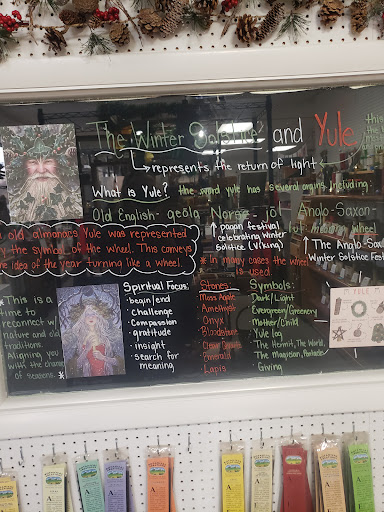 The Winter Solstice and Yule
this
represents the return of light
What is Yule? the word yule has several origins including:
Old English- geōla Norse- jōl Anglo-Saxon-
wheel
pagan festival
celebrating winter
solstice (Viking)
The Anglo-Sax
Winter Solstice Fest
* In many cases the wheel
is used.
old almanacs Yule was represented
by the symbol of the wheel. This conveys
the idea of the year turning like a wheel.
* This is a
time to
reconnect w
nature and old
traditions.
Aligning you
with the change
of seasons. *
Spiritual Focus:
· begin/end
· challenge
· compassion
· gratitude
· insight
· search for
meaning
Stones
· Moss Agate
· Amethyst
· Onyx
· Bloodstone
· Clear Quartz
· Emerald
· Lapis
Symbols:
· Dark/Light
· Evergreen/Greenery
· Mother/Child
· Yule log
· The Hermit, The World,
The Magician, Pentacle
· Giving